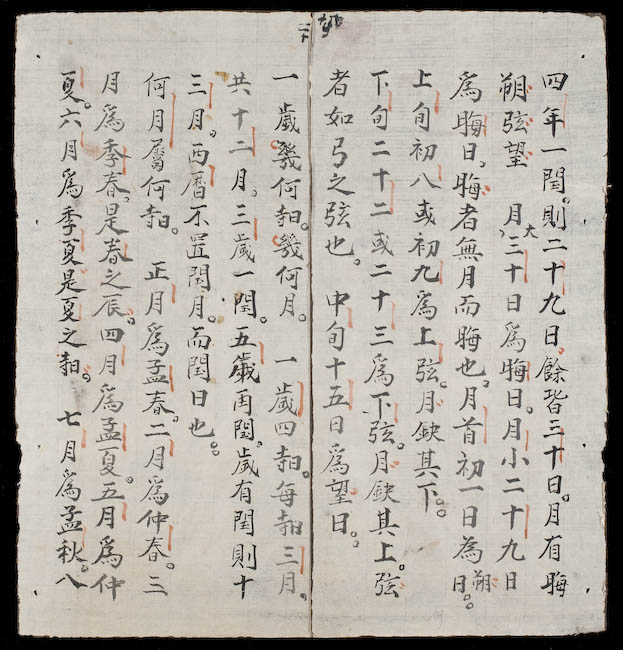 二十
四年一閏。則二十九日。餘皆三十日。月有晦
朔弦望 月大、三十日爲晦日。月小二十九日
爲晦日。晦者無月而晦也。月首初一日爲朔日。
上旬初八或初九爲上弦。月缺其下。
下旬二十二或二十三爲下弦。月缺其上。弦
者如弓之弦也。 中旬十五日爲望日。
一歲幾何時。幾何月。 一歲四時。每時三月。
共十二月。三歲一閏。五歲再閏。歲有閏則十
三月。西曆不置閏月。而閏日也。
何月屬何時。 正月爲孟春。二月爲仲春。三
月爲季春。是春之辰。四月爲孟夏。五月爲仲
夏。六月爲季夏是夏之時。 七月爲孟秋。八